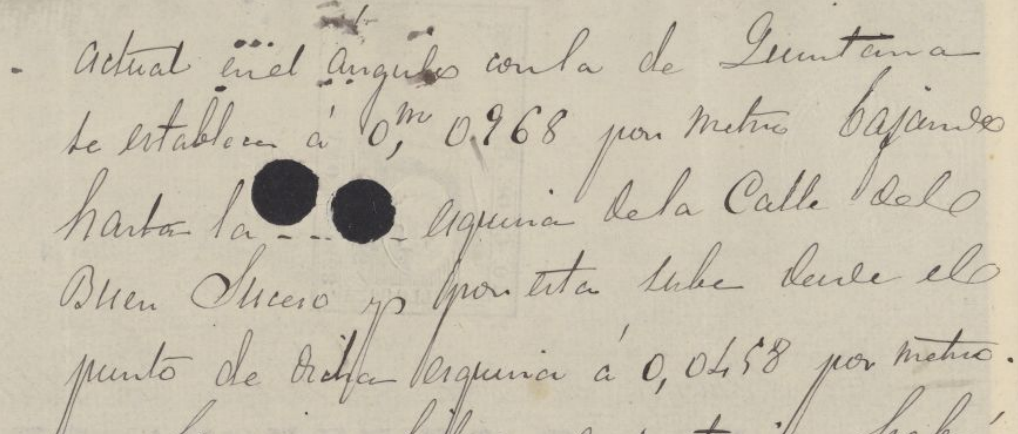 actual en el angulo con la de Quintana
se establece á 0,ᵐ 0268 por metro bajando
hasta la - - - - esquina de la Calle del
Buen Suceso y por esta sube desde el
punto de dicha esquina á 0,0458 por metro.